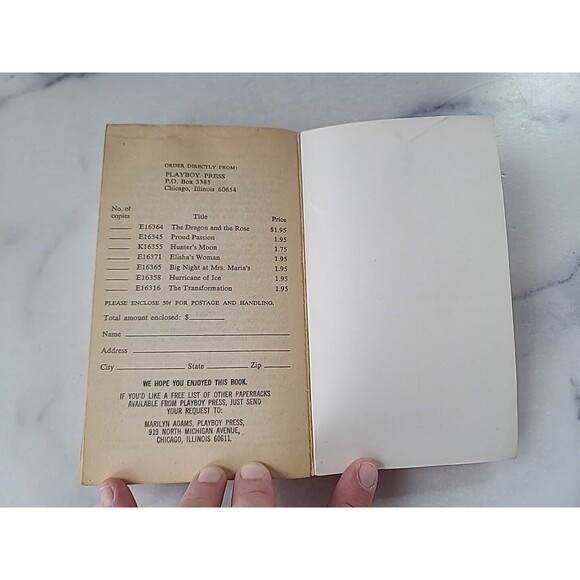 ORDER DIRECTLY FROM:
PLAYBOY PRESS
P.O. Box 3385
Chicago, Illinois 60654
No. of copies Title Price
E16364 The Dragon and the Rose $1.95
E16345 Proud Passion 1.95
K16355 Hunter's Moon 1.75
E16371 Elisha's Woman 1.95
E16365 Big Night at Mrs. Maria's 1.95
E16358 Hurricane of Ice 1.95
E16316 The Transformation 1.95
PLEASE ENCLOSE 50¢ FOR POSTAGE AND HANDLING.
Total amount enclosed: $
Name
Address
City State Zip
WE HOPE YOU ENJOYED THIS BOOK.
IF YOU'D LIKE A FREE LIST OF OTHER PAPERBACKS
AVAILABLE FROM PLAYBOY PRESS, JUST SEND
YOUR REQUEST TO:
MARILYN ADAMS, PLAYBOY PRESS,
919 NORTH MICHIGAN AVENUE,
CHICAGO, ILLINOIS 60611.